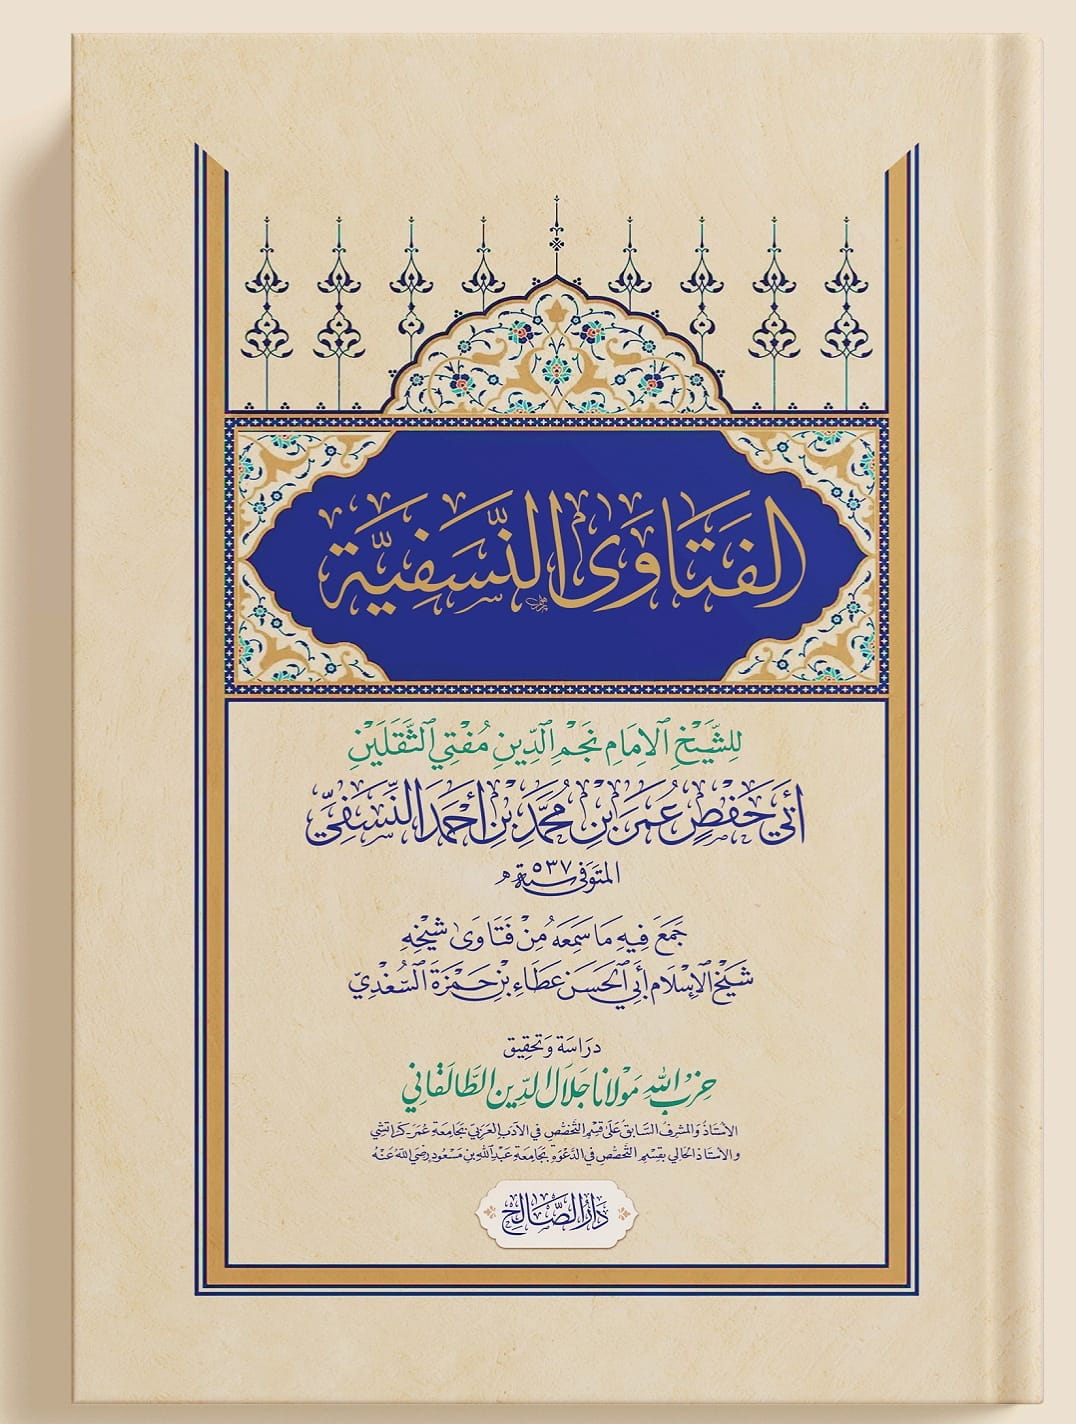 الفَتَاوَى النَّسَفِيَّة
لِلشَّيْخِ الإِمَامِ نَجْمِ الدِّينِ مُفْتِي الثَّقَلَيْنِ
أَبِي حَفْصٍ عُمَرَ بْنِ مُحَمَّدِ بْنِ أَحْمَدَ النَّسَفِيِّ
المتَوَفَّى سَنَة ٥٣٧ هـ
جَمَعَ فِيهِ مَا سَمِعَهُ مِنْ فَتَاوَى شَيْخِهِ
شَيْخِ الإِسْلَامِ أَبِي الْحَسَنِ عَطَاءِ بْنِ حَمْزَةَ السُّغْدِيِّ
دِرَاسَة وَتَحْقِيق
حِزْبُ اللهِ مَوْلَانَا جَلَالُ الدِّينِ الطَّالَقَانِي
الأُسْتَاذُ وَالمشْرِفُ السَّابِقُ عَلَى قِسْمِ التَّخَصُّصِ فِي الأَدَبِ العَرَبِيّ بِجَامِعَةِ عُمَرَ - كَرَاتشِي
وَالأُسْتَاذُ الحَالِي بِقِسْمِ التَّخَصُّصِ فِي الدَّعْوَةِ بِجَامِعَةِ عَبْدِ اللهِ بْنِ مَسْعُودٍ رَضِيَ اللهُ عَنْهُ
دَارُ الصَّالِح